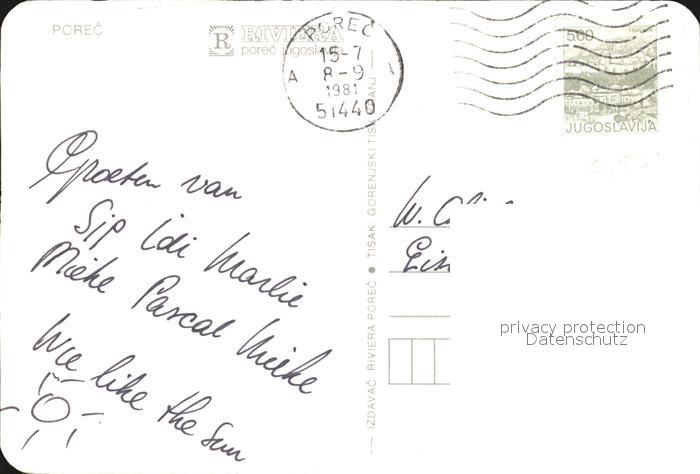 POREČ
R RIVIERA
poreč jugoslavija
POREČ
15-7
A 8-9
1981
51440
5.60
TRAVNIK
JUGOSLAVIJA
Groeten van
Sip Idi Marlie
Mieke Pascal Mieke
We like the Sun
IZDAVAČ RIVIERA POREČ ● TISAK GORENJSKI TISK KRANJ
W.
privacy protection
Datenschutz